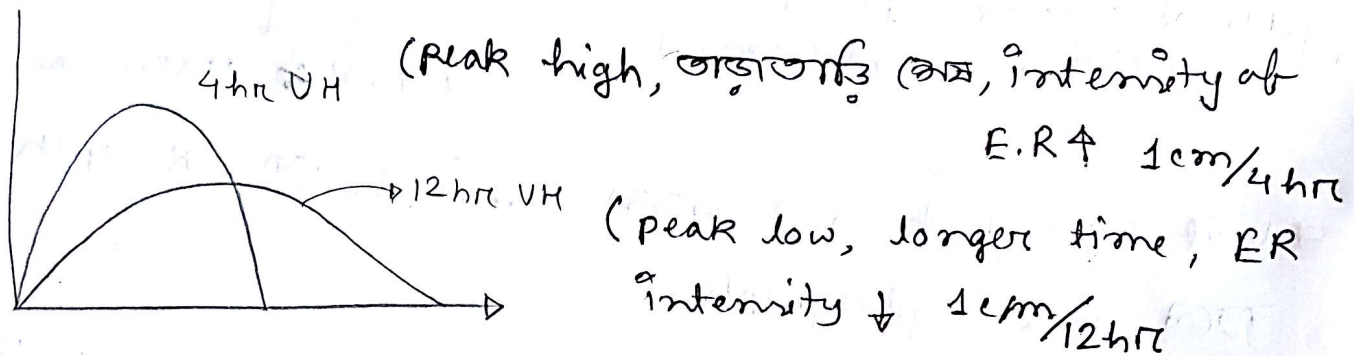 4hr UH
(Peak high, তাড়াতাড়ি শেষ, intensity of
E.R↑ 1cm/4hr
12hr UH
(peak low, longer time, ER
intensity ↓ 1cm/12hr